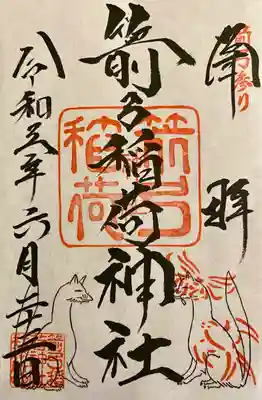 箭弓参り
奉拝
箭弓稲荷神社
箭弓稲荷
令和五年六月 日